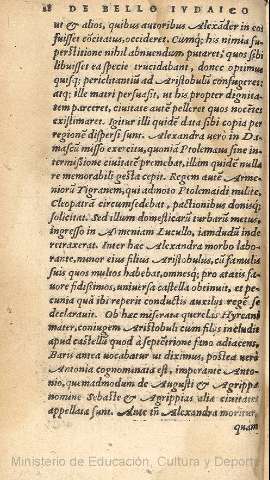 18 DE BELLO IVDAICO
ut & alios, quibus autoribus Alexãder in eos
fuisset cõcitatus, occideret. Cumq; his nimia su-
perstitione nihil abnuendum putaret, quos sibi
libuisset ea specie trucidabant, donec optimus
quisq; periclitantiũ ad Aristobulũ confugeret:
atq; ille matri persuasit, ut his propter dignita-
tem parceret, ciuitate autẽ pelleret quos nocẽtes
existimaret. Igitur illi quidẽ data sibi copia per
regionẽ dispersi sunt. Alexandra uerò in Da-
mascũ misso exercitu, quoniã Ptolemæus sine in-
termißione ciuitatẽ premebat, illam quidẽ nulla
re memorabili gesta cepit. Regem autẽ Arme-
niorũ Tigranem, qui admoto Ptolemaidi milite,
Cleopatrã circumsedebat, pactionibus donisq;
solicitat. Sed illum domesticarũ turbarũ metus,
ingresso in Armeniam Lucullo, iamdudũ inde
retraxerat. Inter hæc Alexandra morbo labo-
rante, minor eius filius Aristobulus, cũ famulis
suis quos multos habebat, omnesq; pro ætatis fa-
uore fidißimos, uniuersa castella obtinuit, et pe-
cunia quã ibi reperit conductis auxilijs regẽ se
declarauit. Ob hæc miserata querelas Hyrcani
mater, coniugem Aristobuli cum filijs includit
apud castellũ quod à septẽtrione fano adiacens,
Baris antea uocabatur ut diximus, postea uerò
Antonia cognominata est, imperante Anto-
nio, quemadmodum de Augusti & Agrippæ
nomine Sebaste & Agrippias aliæ ciuitates
appellatæ sunt. Ante tñ Alexandra moritur,
quam
Ministerio de Educación, Cultura y Deporte